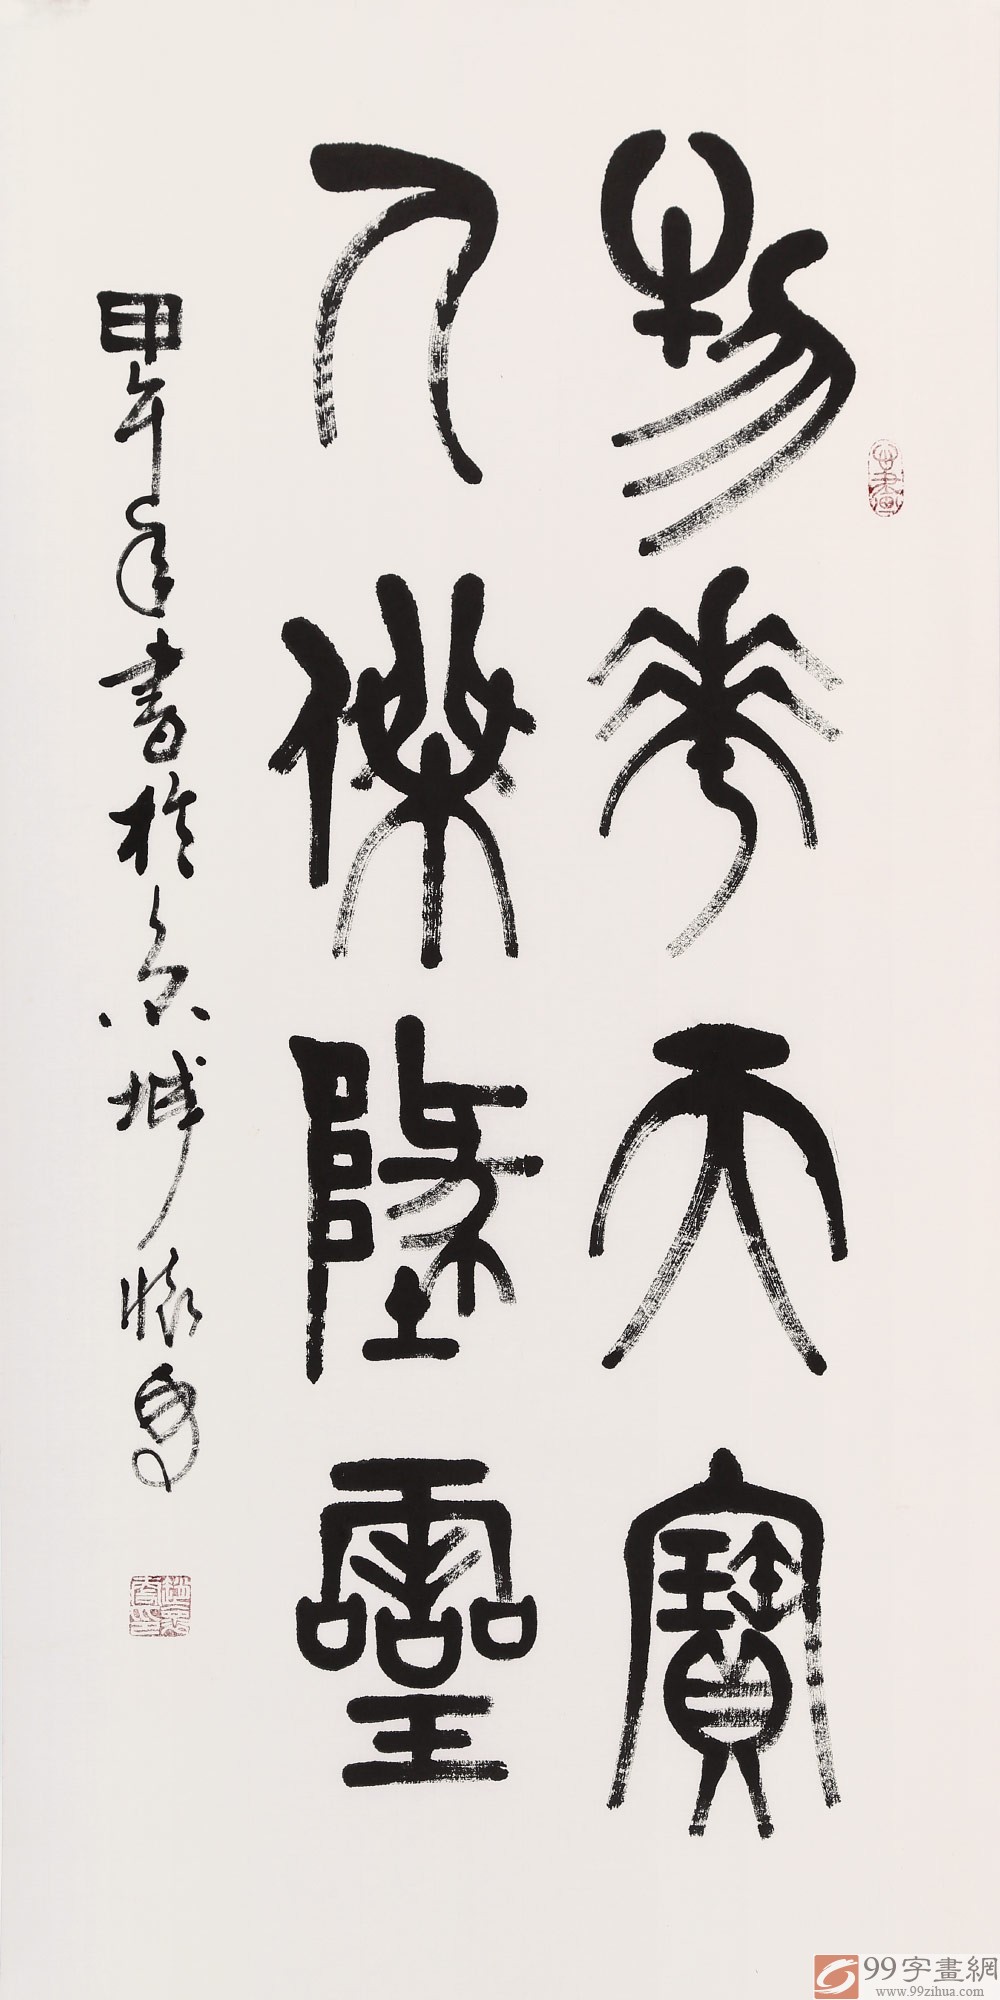 物華天寶
人傑地靈
甲午年書於京城懷秀
99字畫網
www.99zihua.com